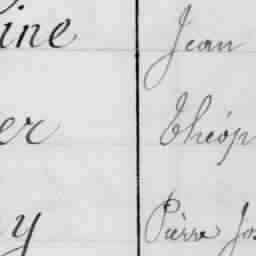 ine Jean
er Théop
y Pierre Jos